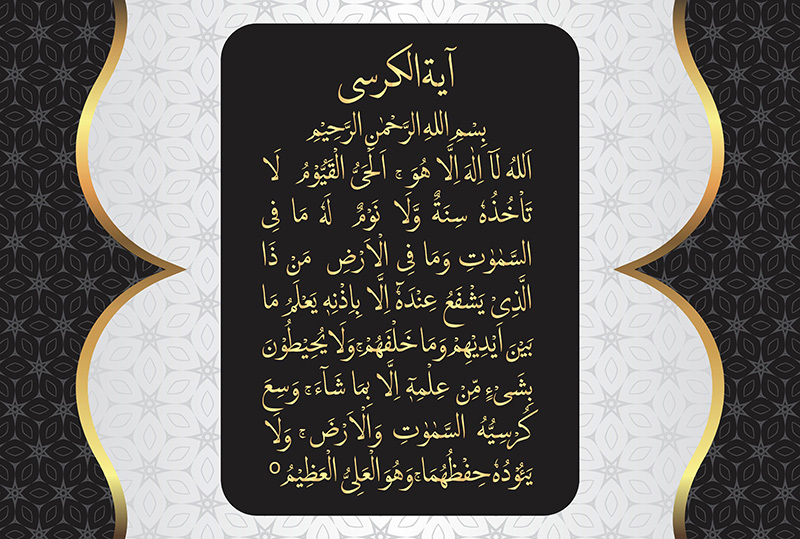 آية الكرسى
بِسْمِ اللهِ الرَّحْمٰنِ الرَّحِيْمِ
اَللهُ لَآ اِلٰهَ اِلَّا هُوَ ۚ اَلْحَىُّ الْقَيُّوْمُ لَا
تَاْخُذُهٗ سِنَةٌ وَّلَا نَوْمٌ لَهٗ مَا فِى
السَّمٰوٰتِ وَمَا فِى الْاَرْضِ مَنْ ذَا
الَّذِىْ يَشْفَعُ عِنْدَهٗٓ اِلَّا بِاِذْنِهٖ يَعْلَمُ مَا
بَيْنَ اَيْدِيْهِمْ وَمَا خَلْفَهُمْ ۚ وَلَا يُحِيْطُوْنَ
بِشَىْءٍ مِّنْ عِلْمِهٖٓ اِلَّا بِمَا شَآءَ ۚ وَسِعَ
كُرْسِيُّهُ السَّمٰوٰتِ وَالْاَرْضَ ۚ وَلَا
يَـُٔوْدُهٗ حِفْظُهُمَا ۚ وَهُوَ الْعَلِىُّ الْعَظِيْمُ ○